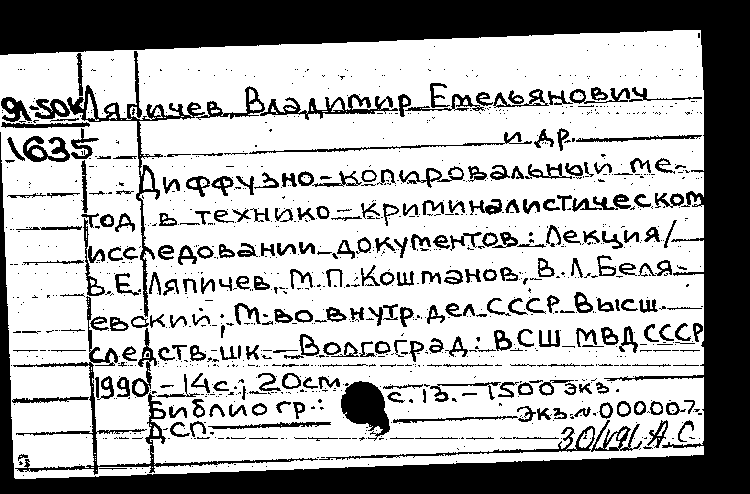 91-50к Ляпичев, Владимир Емельянович
и др.
1635
Диффузно-копировальный ме-
тод в технико-криминалистическом
исследовании документов: Лекция/
В.Е.Ляпичев, М.П.Коштанов, В.Л.Беля-
евский; М-во внутр. дел СССР. Высш.
следств. шк. - Волгоград: ВСШ МВД СССР,
1990. - 14с.; 20см.
Библиогр.: с. 13. - 1500 экз.
ДСП. Экз. N 000007
А.С.